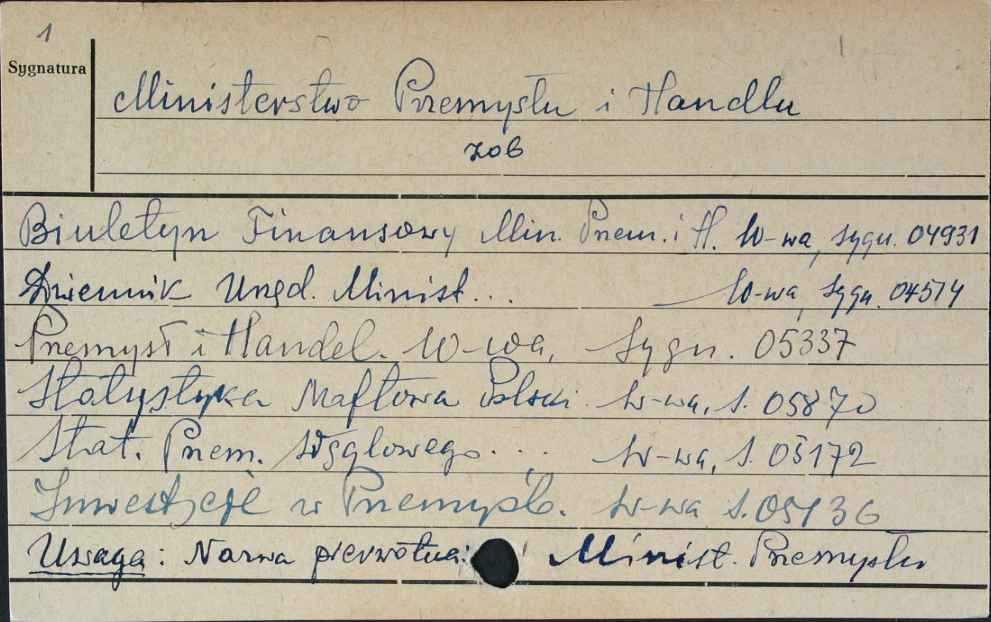 1
Sygnatura
Ministerstwo Przemysłu i Handlu
zob
Biuletyn Finansowy Min. Przem. i H. W-wa, sygn. 04931
Dziennik Urzęd. Minist... W-wa, sygn. 04514
Przemysł i Handel. W-wa, Sygn. 05337
Statystyka Naftowa Polski. W-wa, S. 05870
Stat. Przem. Węglowego... W-wa, S. 05172
Inwestycje w Przemyśle. W-wa S. 05136
Uwaga: Nazwa pierwotna: Minist. Przemysłu